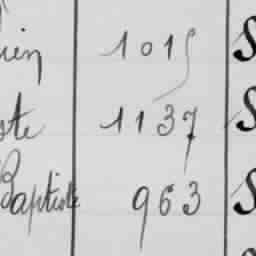 ien 1015
ste 1137
Baptiste 963